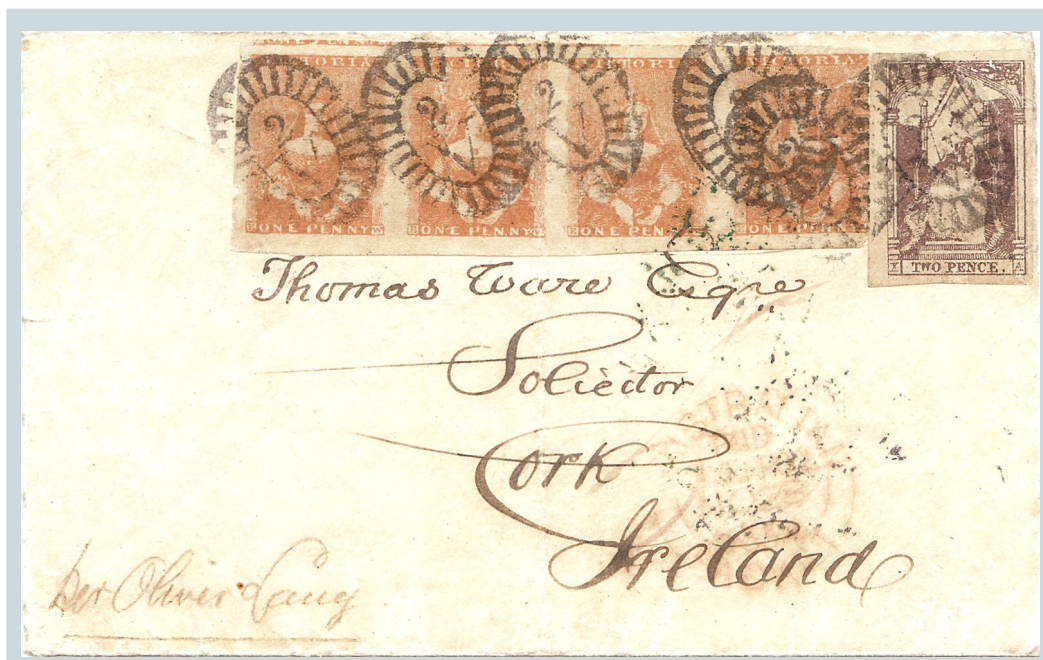 VICTORIA VICTORIA VICTORIA VICTORIA
ONE PENNY ONE PENNY ONE PENNY ONE PENNY
TWO PENCE.
Thomas Ware Eqre
Solicitor
Cork
Ireland
per Oliver Lang